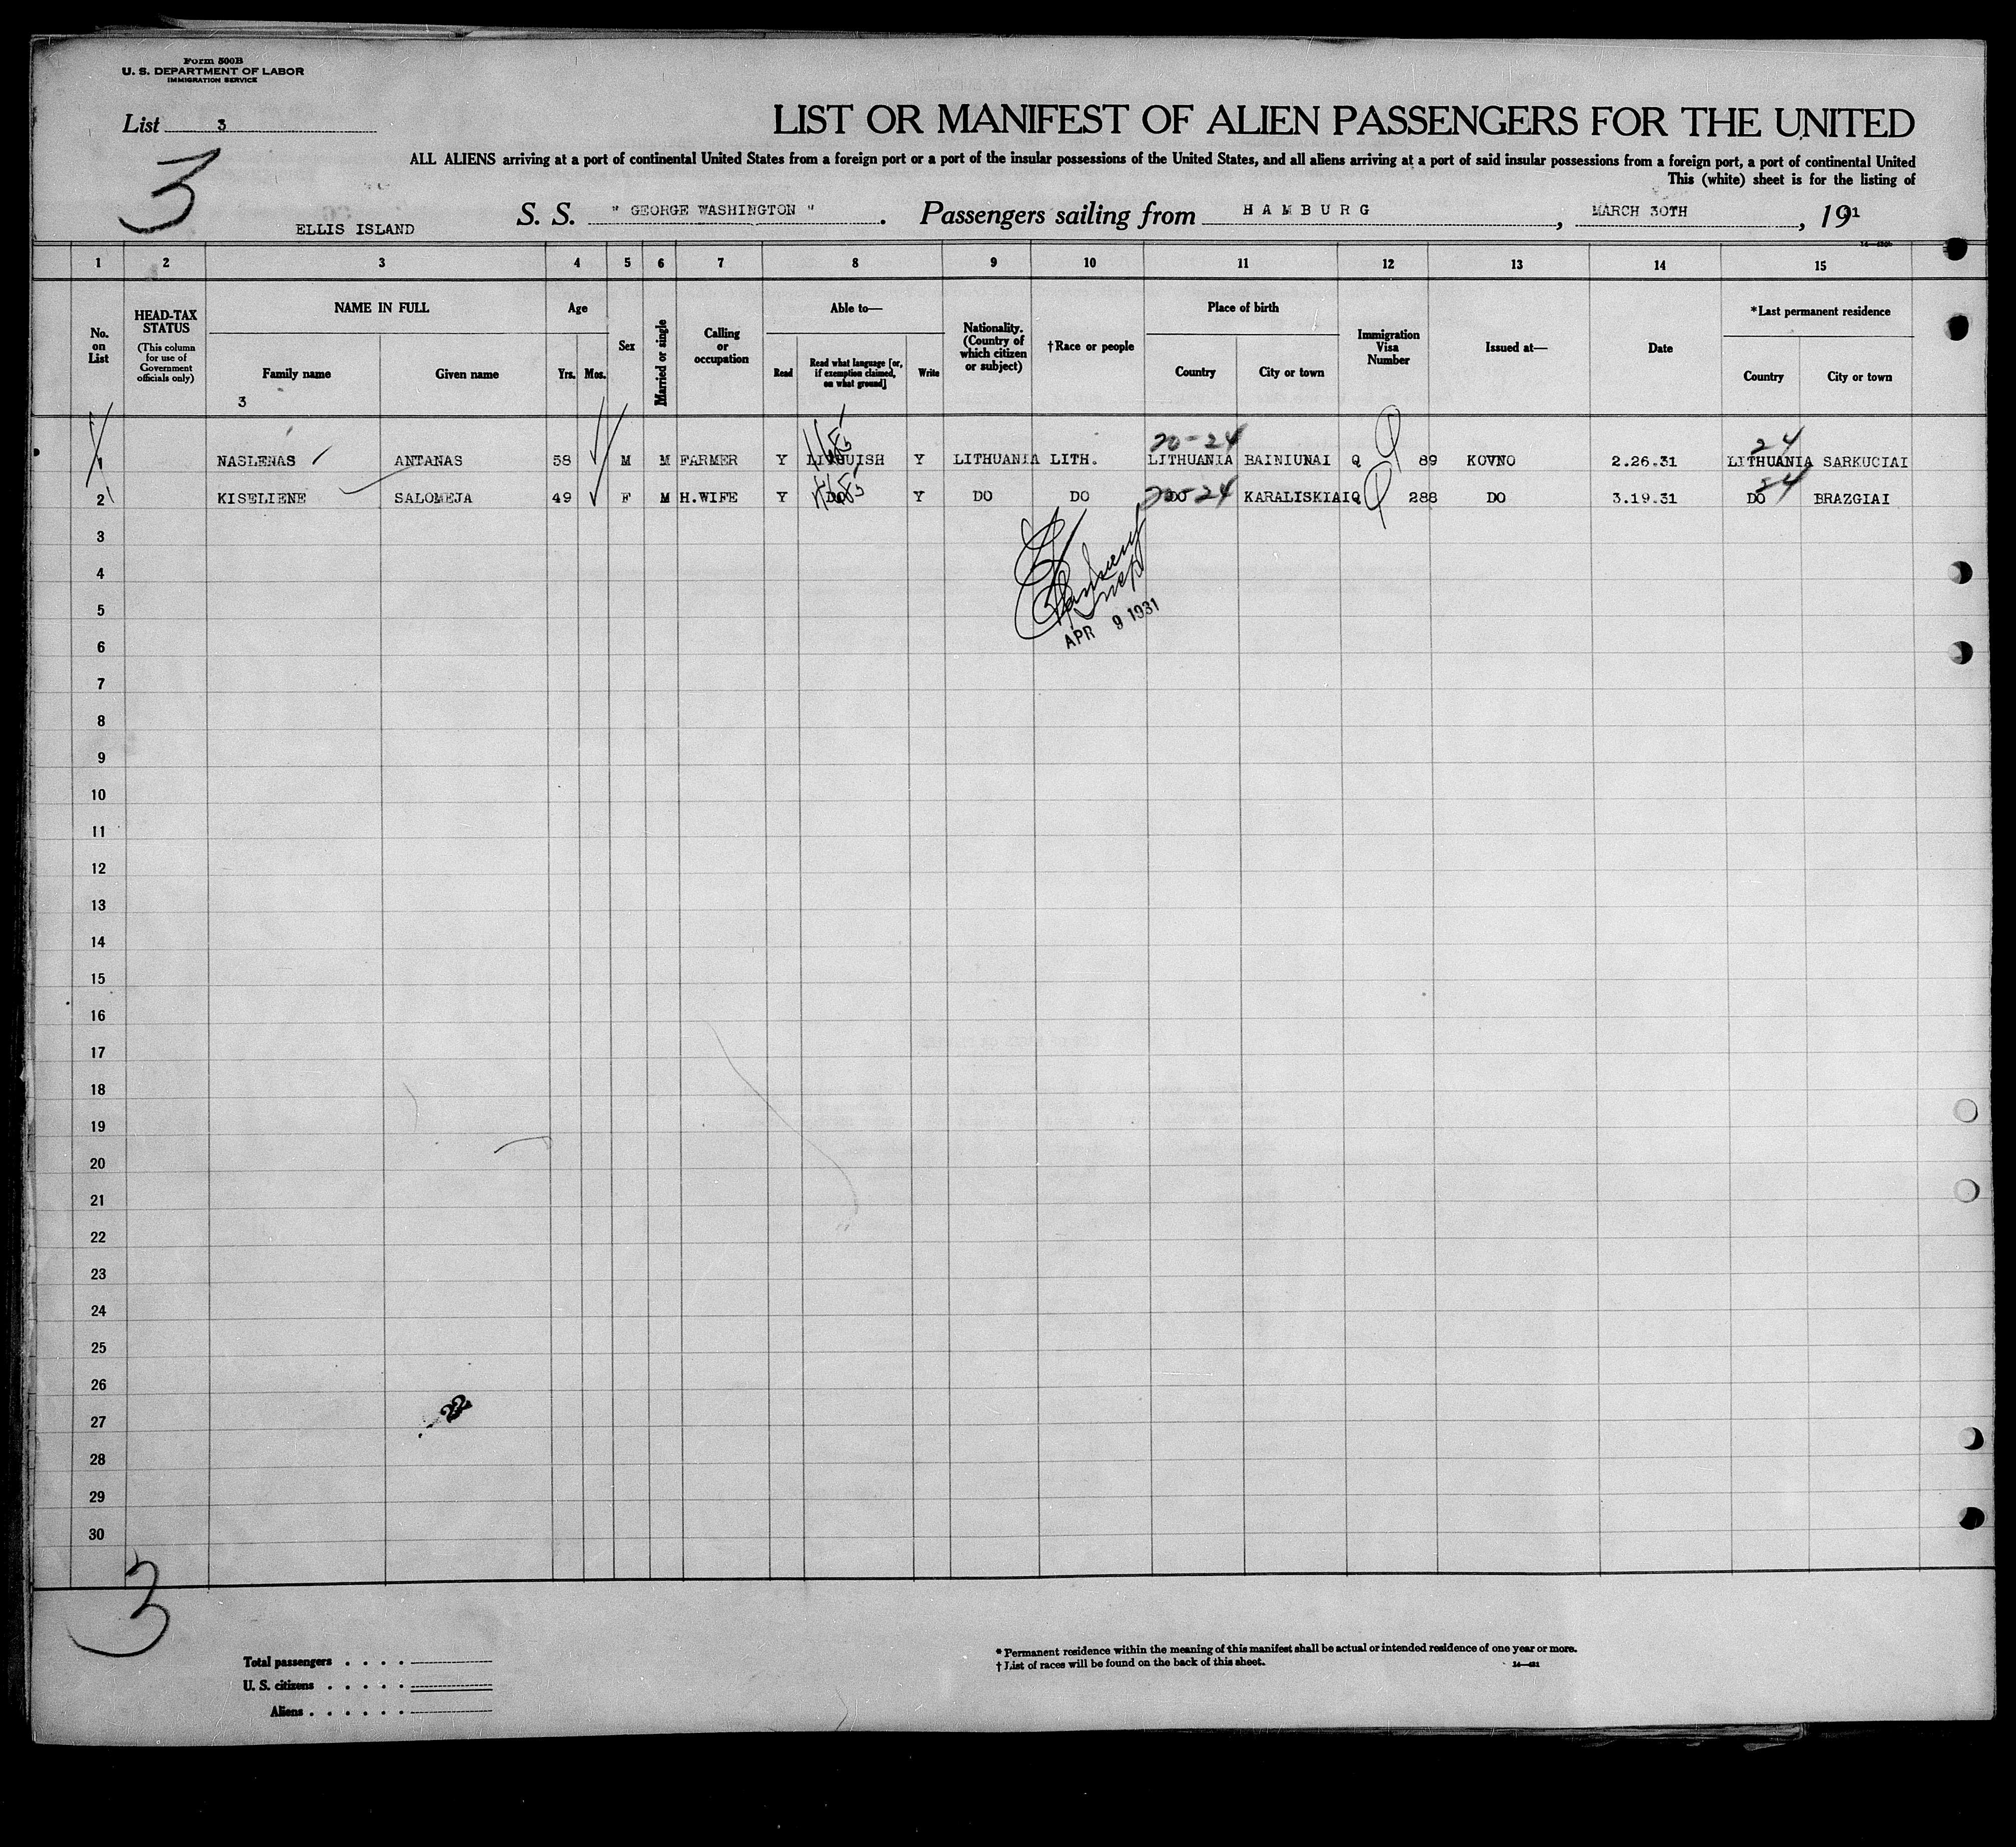 Form 500B
U. S. DEPARTMENT OF LABOR
IMMIGRATION SERVICE
List 3
LIST OR MANIFEST OF ALIEN PASSENGERS FOR THE UNITED
ALL ALIENS arriving at a port of continental United States from a foreign port or a port of the insular possessions of the United States, and all aliens arriving at a port of said insular possessions from a foreign port, a port of continental United
This (white) sheet is for the listing of
3
ELLIS ISLAND
S. S. " GEORGE WASHINGTON ". Passengers sailing from HAMBURG, MARCH 30TH, 19
1 2 3 4 5 6 7 8 9 10 11 12 13 14 15
No. on List
HEAD-TAX STATUS
(This column for use of Government officials only)
NAME IN FULL
Family name
Given name
3
Age
Yrs. Mos.
Sex
Married or single
Calling or occupation
Able to—
Read
Read what language [or, if exemption claimed, on what ground]
Write
Nationality. (Country of which citizen or subject)
†Race or people
Place of birth
Country
City or town
Immigration Visa Number
Issued at—
Date
*Last permanent residence
Country
City or town
20-24
24
1 NASLENAS ANTANAS 58 M M FARMER Y Y LITHUANIA LITH. LITHUANIA BAINIUNAI Q 89 KOVNO 2.26.31 LITHUANIA SARKUCIAI
2 KISELIENE SALOMEJA 49 F M H.WIFE Y DO Y DO DO DO 24 KARALISKIAI Q 288 DO 3.19.31 DO BRAZGIAI
3
4
5
APR 9 1931
6
7
8
9
10
11
12
13
14
15
16
17
18
19
20
21
22
23
24
25
26
27
28
29
30
3
Total passengers . . . .
U. S. citizens . . . . .
Aliens . . . . . .
* Permanent residence within the meaning of this manifest shall be actual or intended residence of one year or more.
† List of races will be found on the back of this sheet.